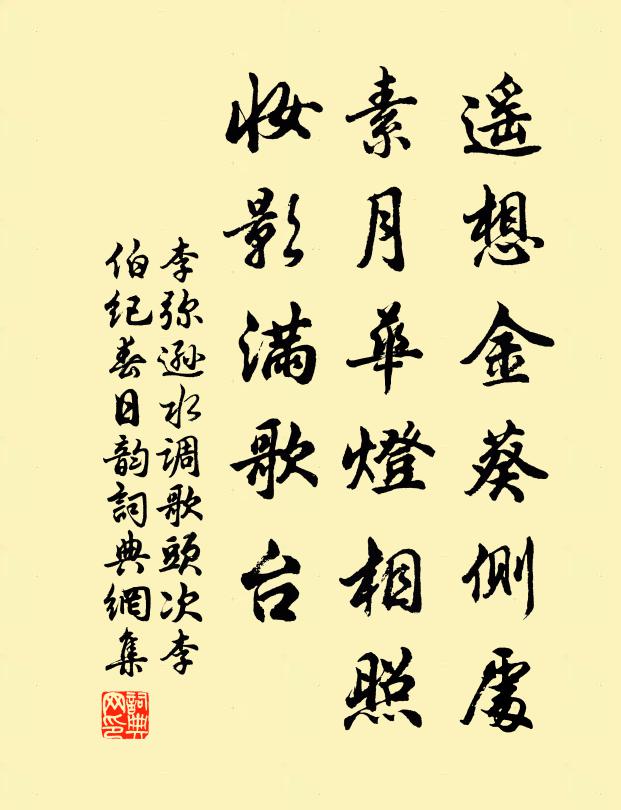 遥想金葵側處
素月華燈相照
妆影满歌台
李弥遜水调歌頭次李
伯纪春日韵詞典網集
詞典
网印